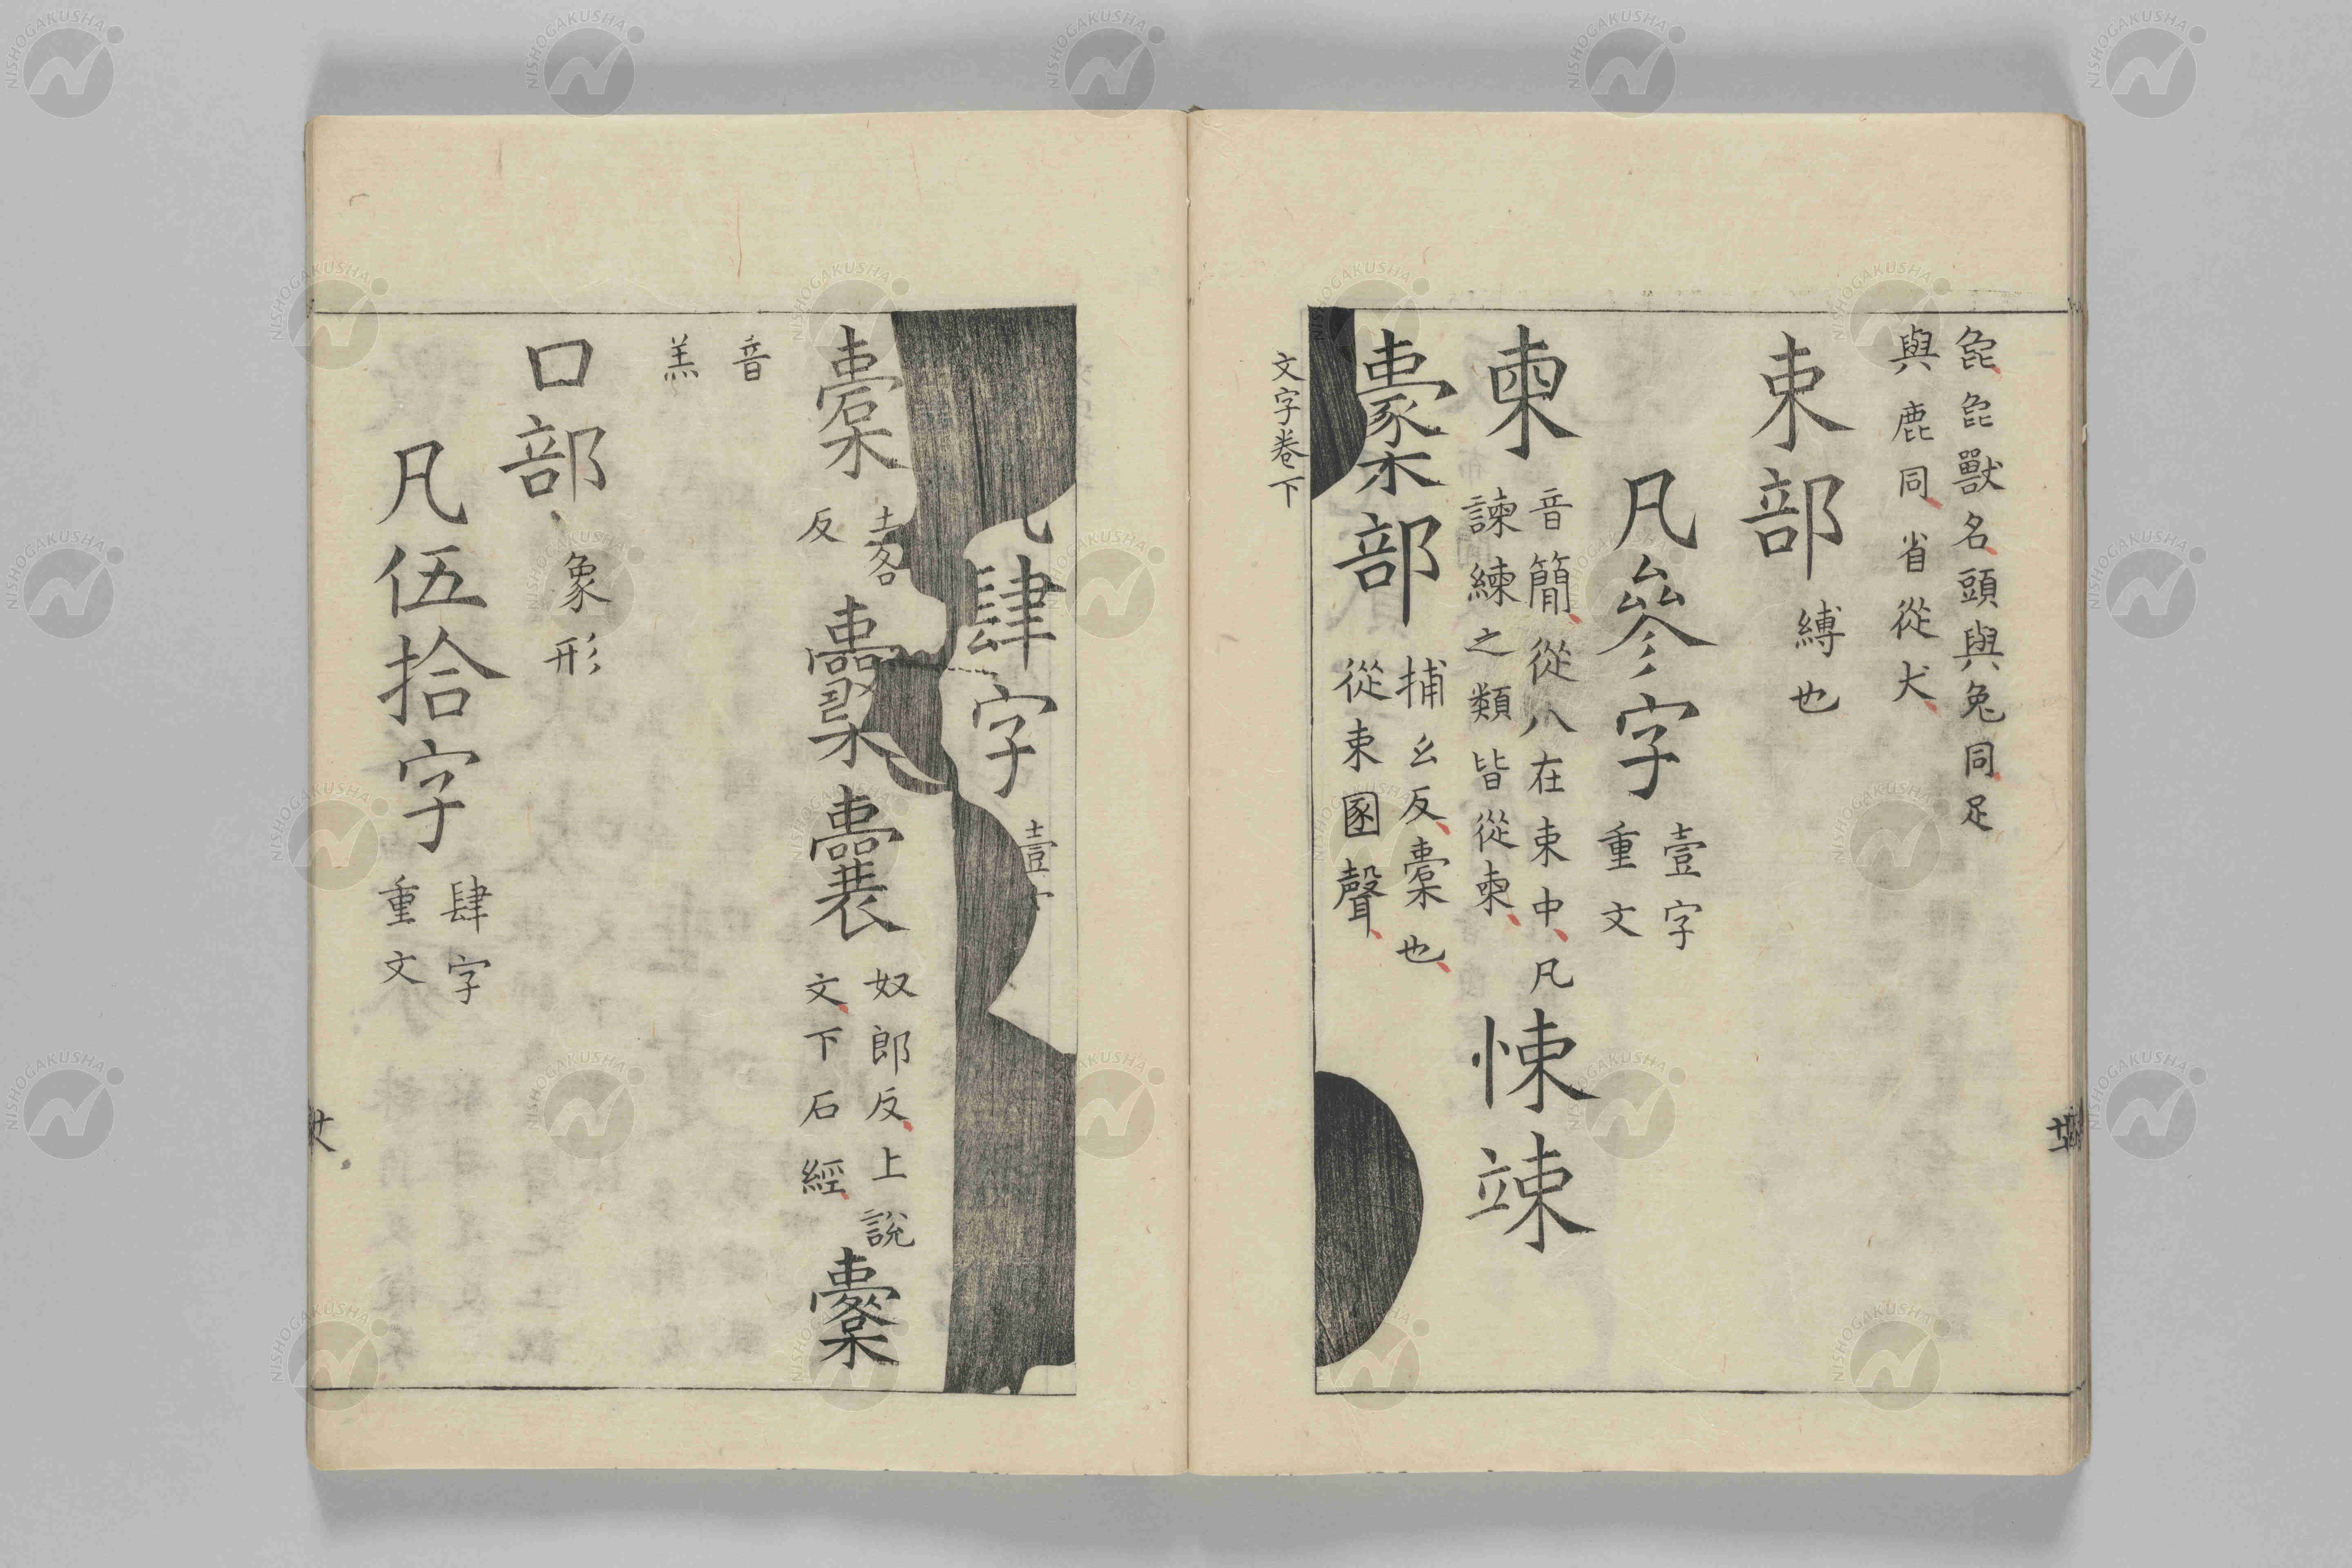 㲋㲋獸名頭與兔同足
與鹿同省從犬
束部縛也
凡參字壹字
重文
柬音簡從八在束中凡
諫練之類皆從柬
悚竦
㯻部捕幺反橐也
從束圂聲
文字卷下
肆字壹
橐土各
反
囊奴郎反上說
文下石經
櫜
音
羔
口部象形
凡伍拾字肆字
重文
NISHOGAKUSHA